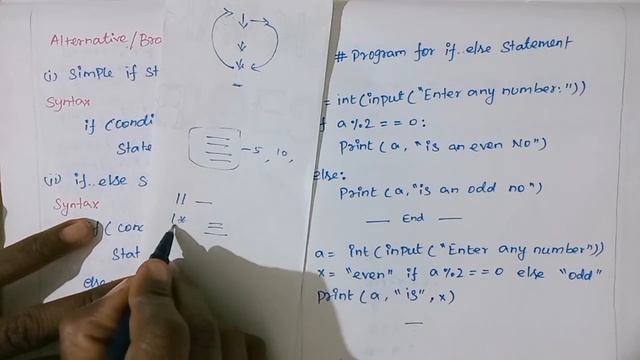 Alternative/Bra
(i) Simple if st
Syntax
if (condi
State
(ii) if..else S
Syntax
if (conc
Stat
else
5, 10,
//
/*
# Program for if..else Statement
= int(input("Enter any number:"))
f a%2 == 0:
Print (a, "is an even No")
else:
Print (a, "is an odd no")
End
a = int (input ("Enter any number"))
x = "even" if a%2 == 0 else "odd"
print (a, "is", x)